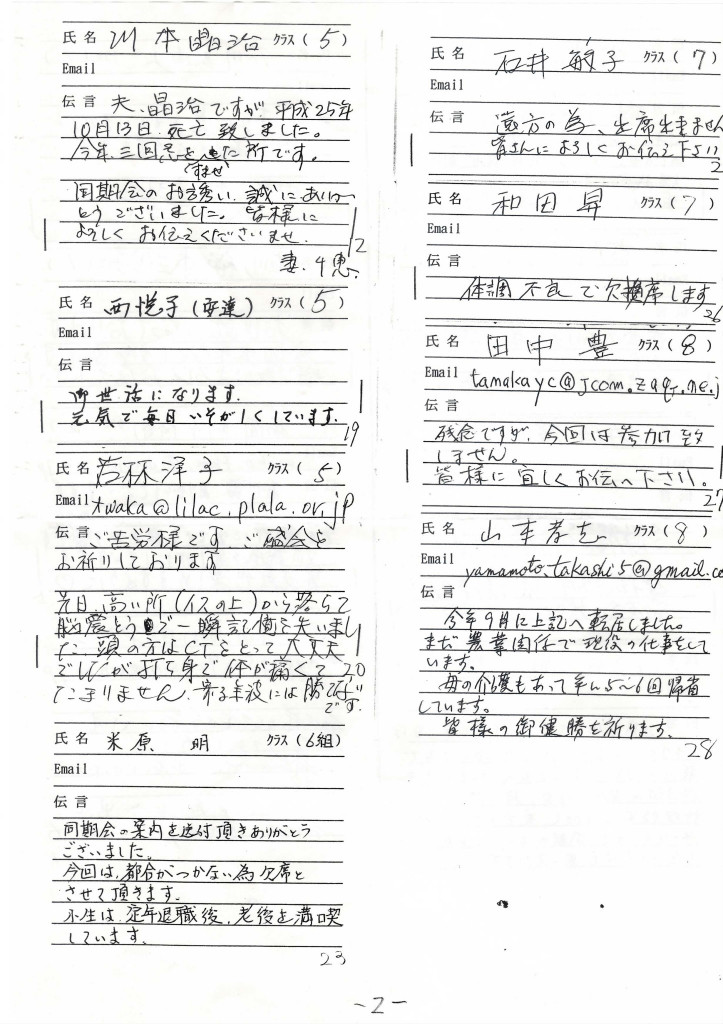 氏名 川本晶治 クラス(5)
Email
伝言 夫、晶治ですが 平成25年
10月13日、死亡 致しました。
今年、三回忌をすませた所です。
同期会のお誘い、誠にありが
とうございました。皆様に
よろしく お伝えくださいませ
12
妻.
氏名 西悦子(安達) クラス(5)
Email
伝言
御世話になります.
元気で毎日いそがしくしています.
19
氏名 若林洋子 クラス(5)
Email twaka@lilac.plala.or.jp
伝言 ご苦労様です. ご盛会を
お祈りしております
先日、高い所(イスの上)から落ちて
脳震とうで一瞬記憶を失いまし
た、頭の方はCTをとって大丈夫
でしたが打ち身で体が痛くて
たまりません、寄る年波には勝てず
です.
20
氏名 米原 明 クラス(6組)
Email
伝言
同期会の案内を送付頂きありがとう
ございました。
今回は、都合がつかない為欠席と
させて頂きます.
小生は、定年退職後、老後を満喫
しています.
23
氏名 石井敏子 クラス(7)
Email
伝言 遠方の為、出席出来ません
皆さんによろしくお伝え下さい
2
氏名 和田昇 クラス(7)
Email
伝言
体調不良で欠席します
26
氏名 田中 豊 クラス(8)
Email tamakayc@jcom.zaq.ne.j
伝言
残念ですが、今回は参加致
しません。
皆様に宜しくお伝へ下さい。
27
氏名 山本 クラス(8)
Email
yamamoto.takashi5@gmail.co
伝言
今年9月に上記へ転居しました。
まだ農業関係で現役の仕事をして
います。
母の介護もあって年に5~6回帰省
しています。
皆様の御健勝を祈ります.
28
-2-